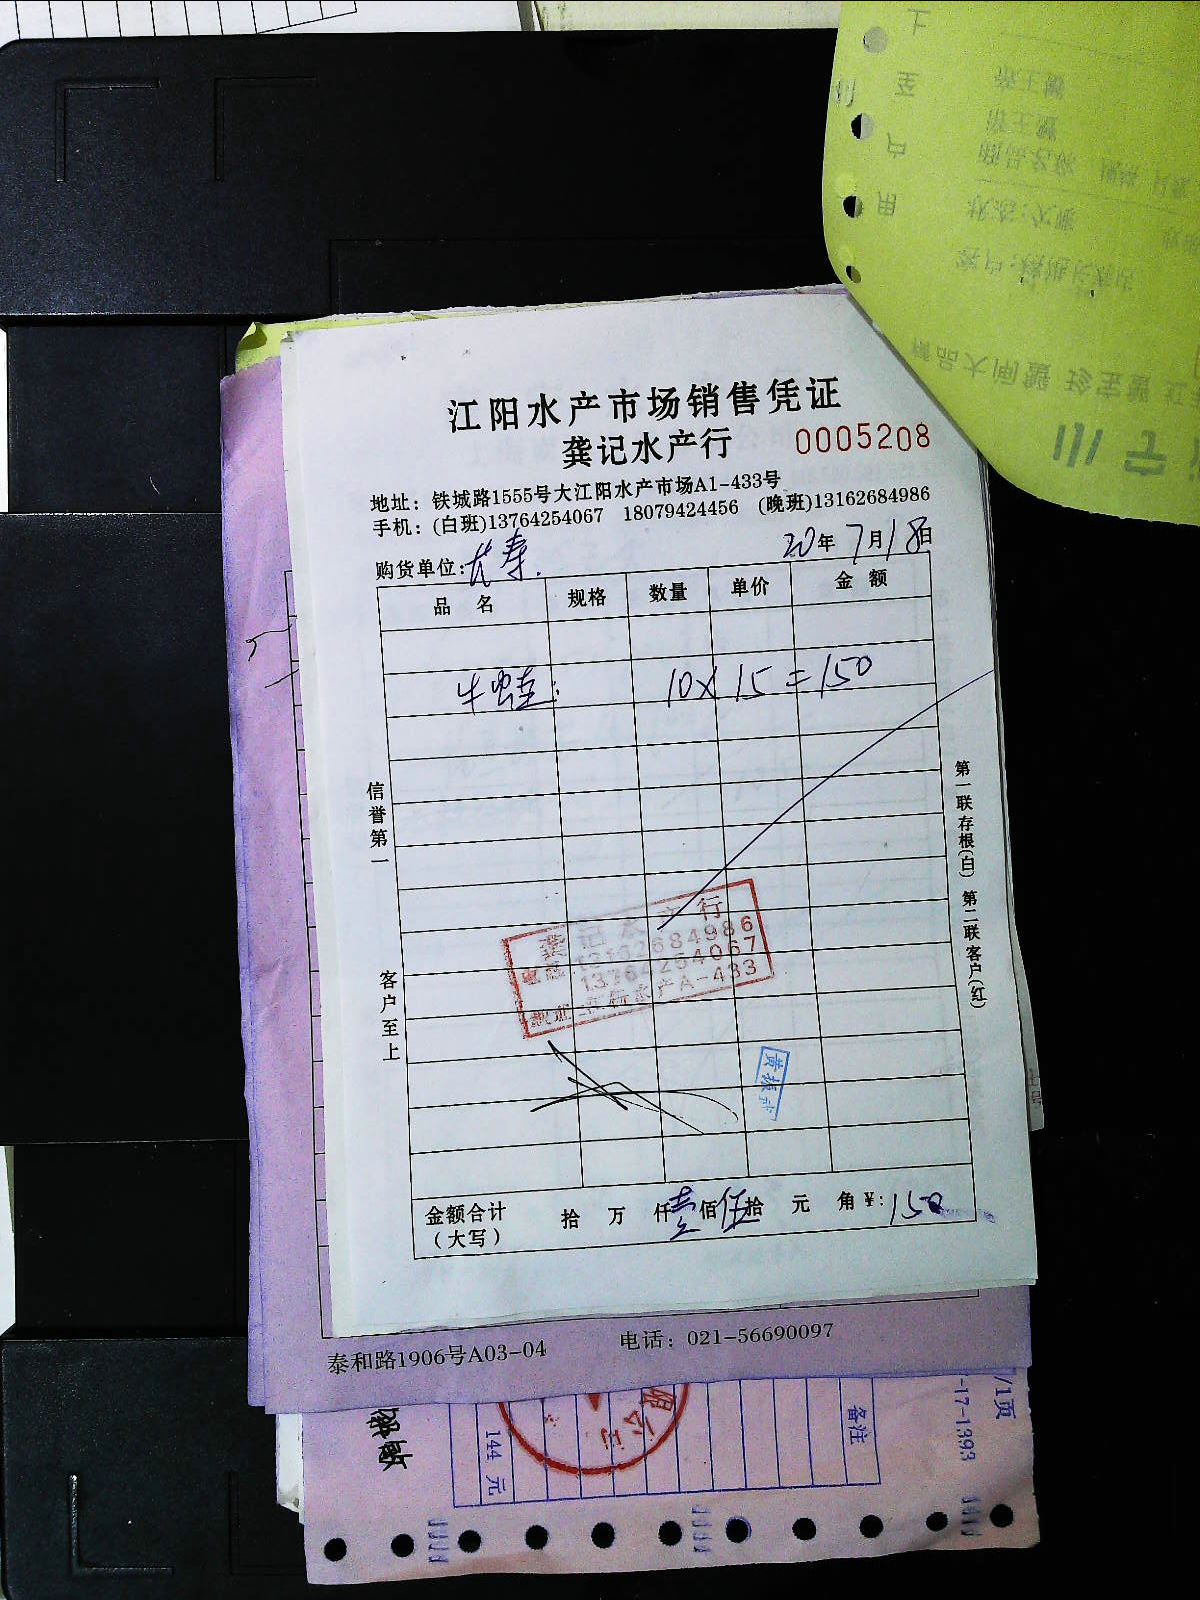 江阳水产市场销售凭证
龚记水产行 0005208
地址：铁城路1555号大江阳水产市场A1-433号
手机：(白班)13764254067 18079424456 (晚班)13162684986
购货单位: 20年7月18日
品 名 规格 数量 单价 金 额
牛蛙: 10×15=150
信誉第一
客户至上
第一联存根(白) 第二联客户(红)
龚记水产行
13162684986
13764254067
水产A-433
黄振
金额合计（大写） 拾 万 仟壹佰伍拾 元 角 ¥:150
泰和路1906号A03-04 电话：021-56690097
144 元
限公司
备注
-17-1393
/1页
用户
客户:
状态:
商品名称
帝王蟹
帝王蟹
品大闸蟹 珍宝蟹